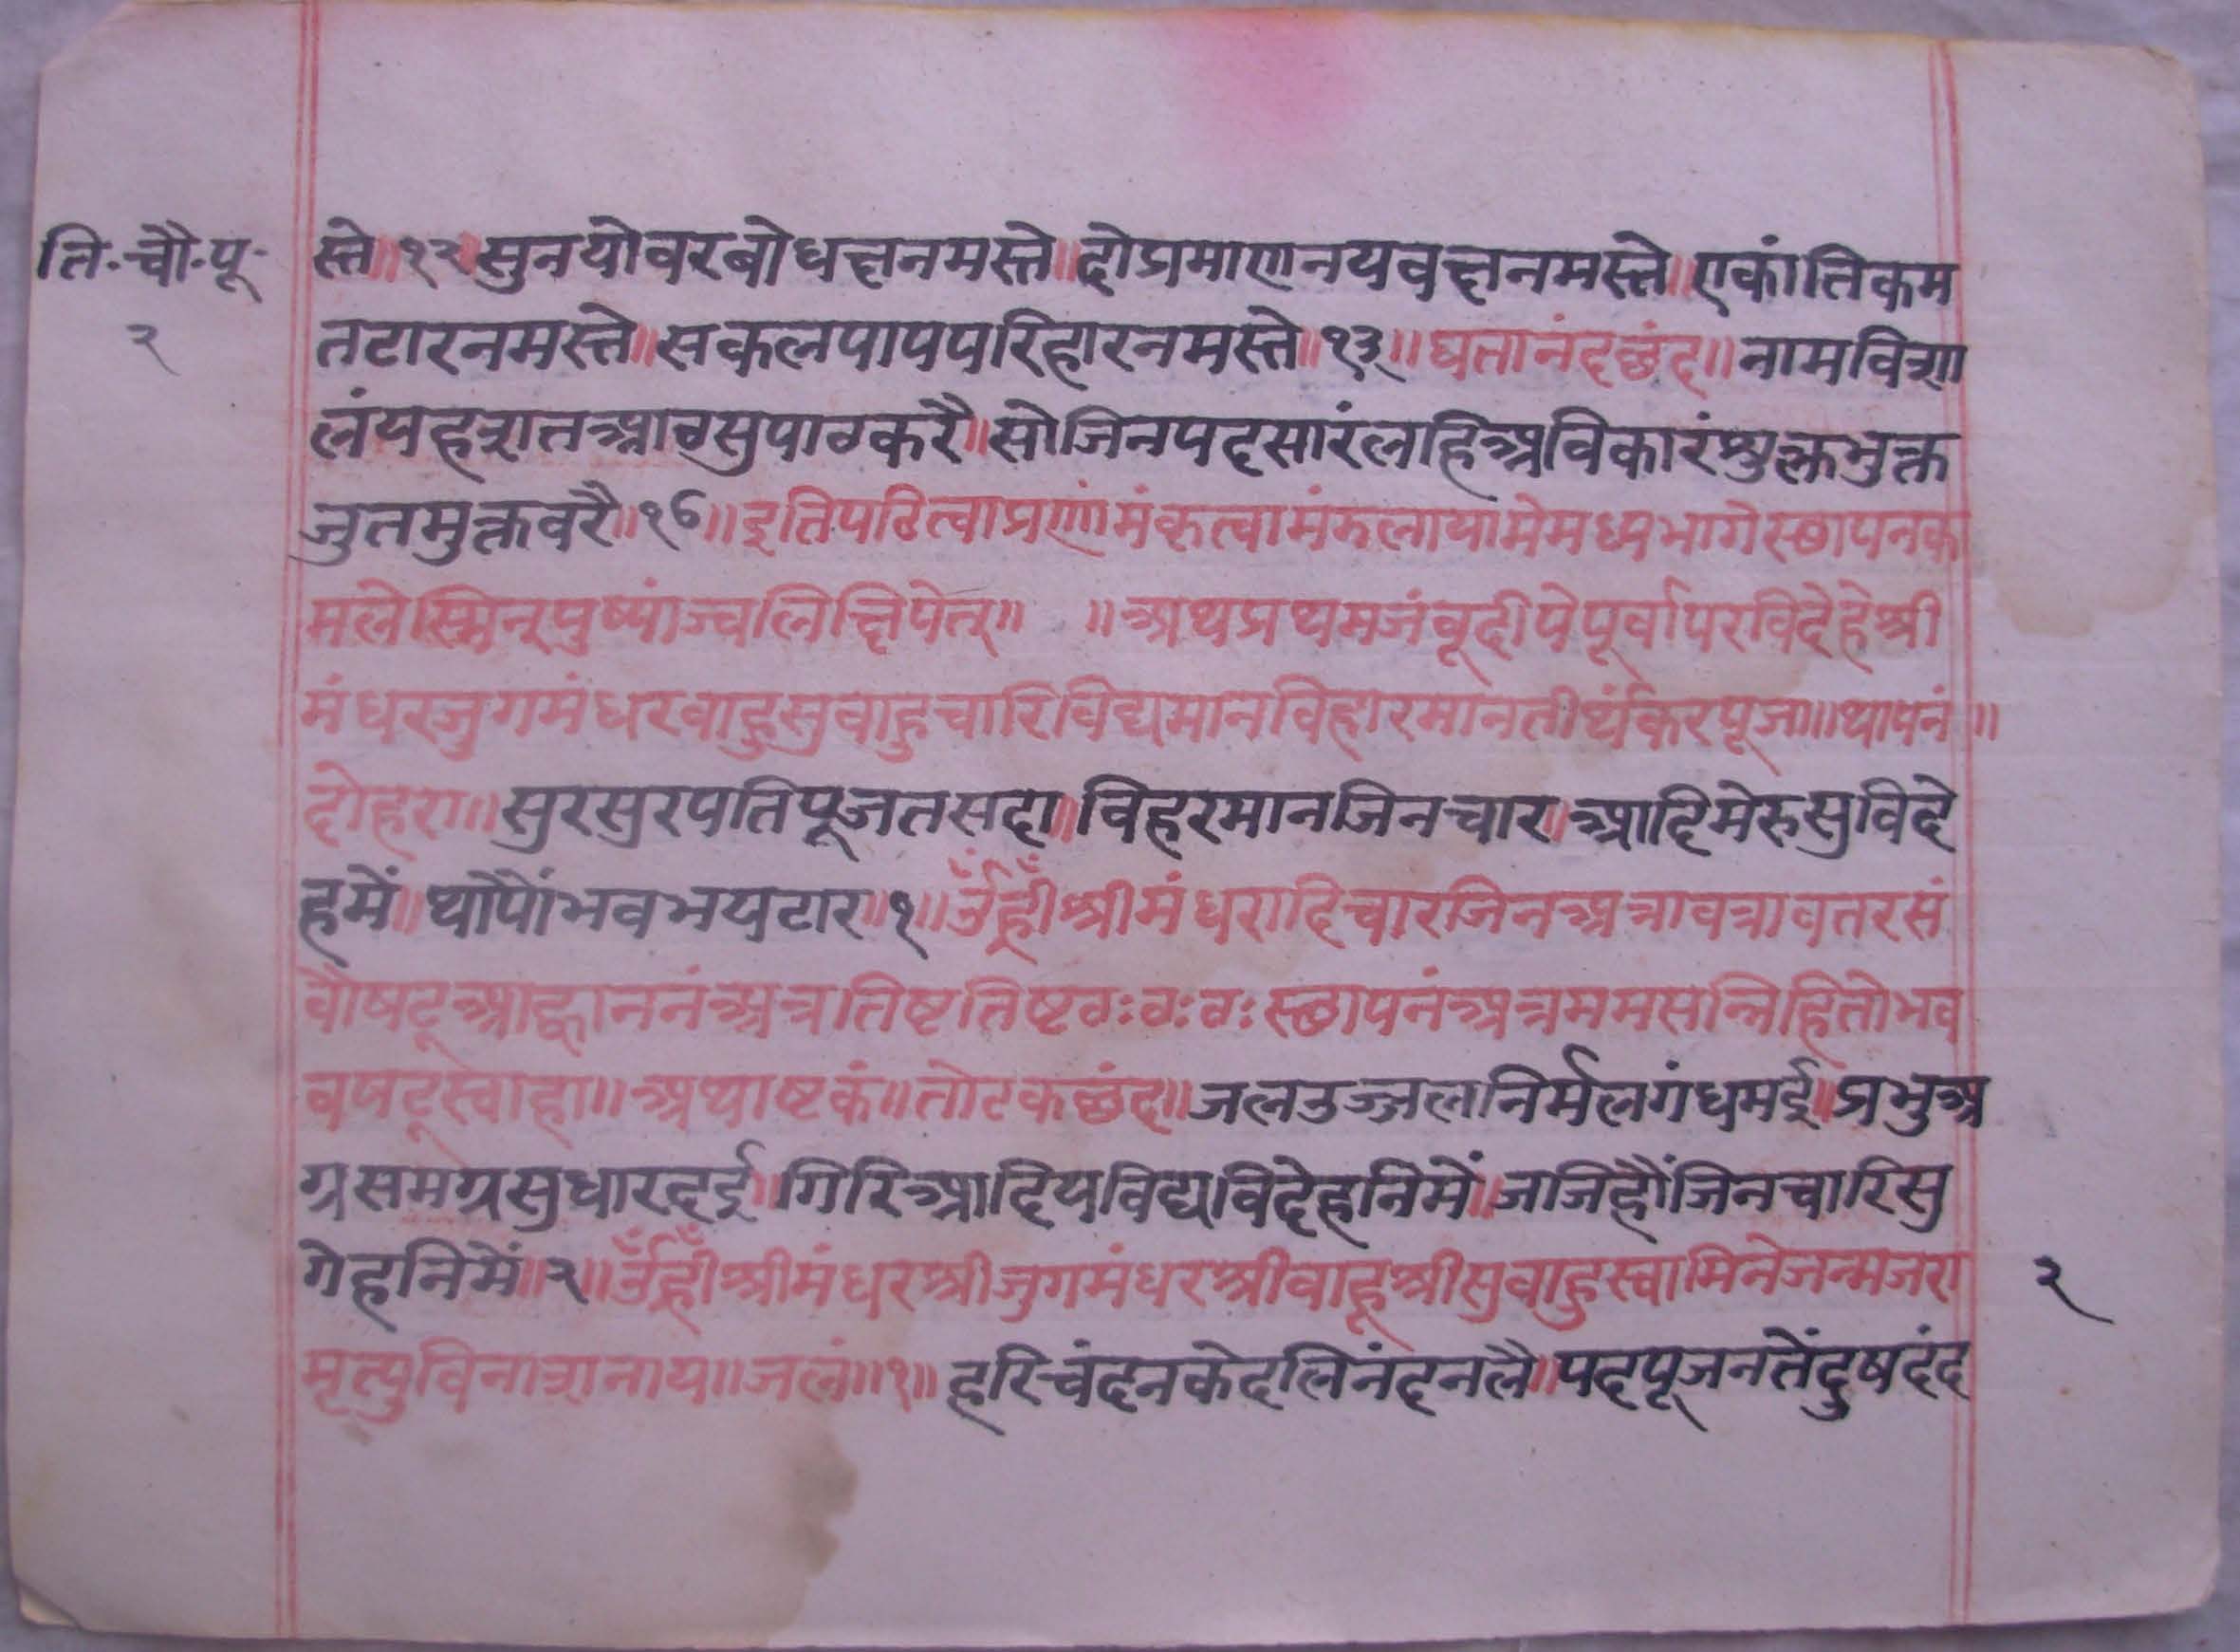 ति·चौ·पू·
२
स्ते॥१२॥सुनयोवरबोधत्तनमस्ते॥दोप्रमाणनयवत्तनमस्ते॥एकांतिकम
तटारनमस्ते॥सकलपापपरिहारनमस्ते॥१३॥घतानंदछंद॥नामविशा
लंयहशतआठसुपाठकरै॥सोजिनपदसारंलहिअविकारंभुक्तभुक्त
जुतमुक्तवरै॥१४॥इतिपठित्वाप्रणांमंकृत्वामंडलायामेमध्यभागेस्छापनक
मलेस्मिन्पुष्पांज्वलिक्षिपेत्॥ ॥अथप्रथमजंवूदीपेपूर्वापरविदेहेश्री
मंधरजुगमंधरवाहुसुवाहुचारिविद्यमानविहारमानतीर्थंकरपूजा॥थापनं॥
दोहरा॥सुरसुरपतिपूजतसदा॥विहरमानजिनचार॥आदिमेरुसुविदे
हमें॥थापौंभवभयटार॥१॥उँह्रीँश्रीमंधरादिचारजिनअत्रावत्रावतरसं
वौषट्आह्वाननंअत्रतिष्टतिष्टठःठःठःस्छापनंअत्रममसन्निहितोभव
वषट्स्वाहा॥अथाष्टकं॥तोटकछंद॥जलउज्जलनिर्मलगंधमई॥प्रभुअ
ग्रसमग्रसुधारदई॥गिरिआदियविद्यविदेहनिमें॥जजिहौंजिनचारिसु
गेहनिमें॥२॥उँह्रीँश्रीमंधरश्रीजुगमंधरश्रीवाहूश्रीसुवाहुस्वामिनेजन्मजरा
२
मृत्युविनाशनाय॥जलं॥१॥हरिचंदनकेदलिनंदनलै॥पदपूजनतेंदुषदंद